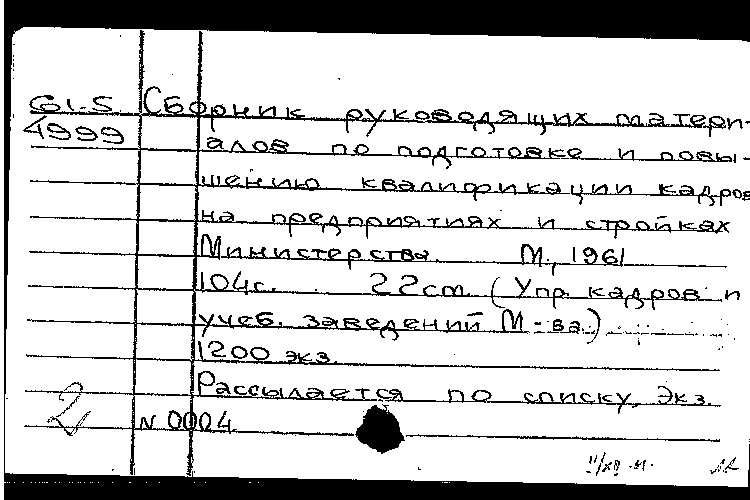 61-5 Сборник руководящих матери-
4999 алов по подготовке и повы-
шению квалификации кадров
на предприятиях и стройках
Министерства. М., 1961
104с. 22см. (Упр. кадров и
учеб. заведений М-ва.)
1200 экз.
Рассылается по списку. Экз.
2 N 0004